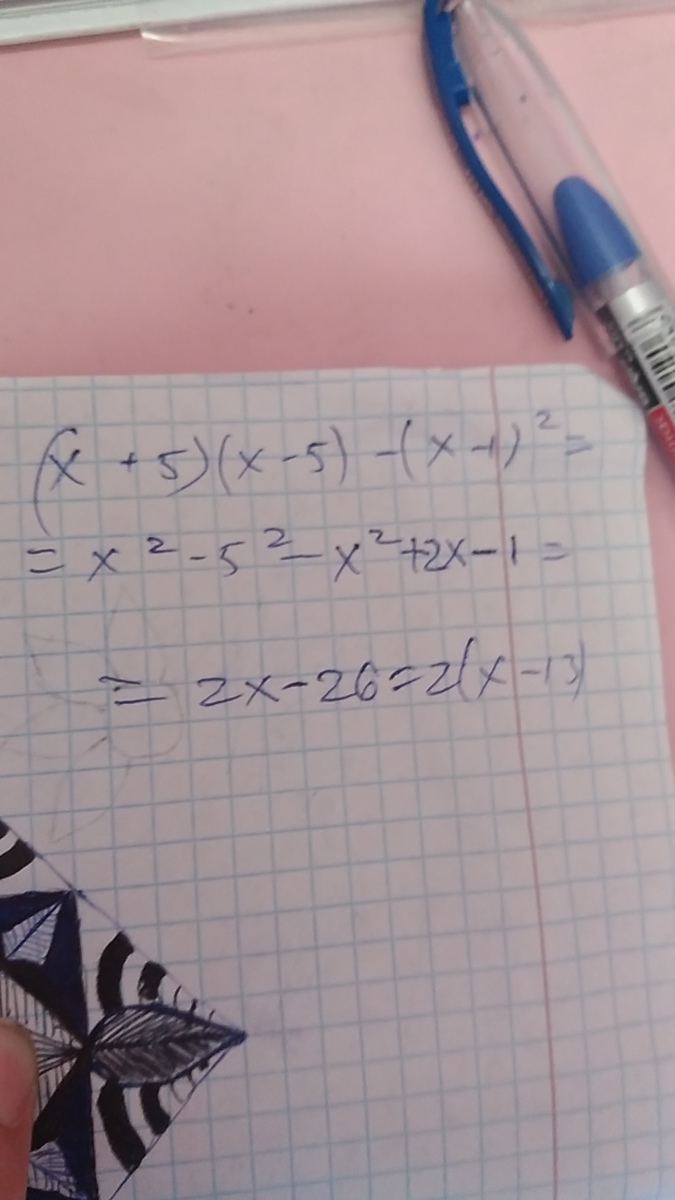 (x + 5)(x - 5) - (x - 1)² =
= x² - 5² - x² + 2x - 1 =
= 2x - 26 = 2(x - 13)